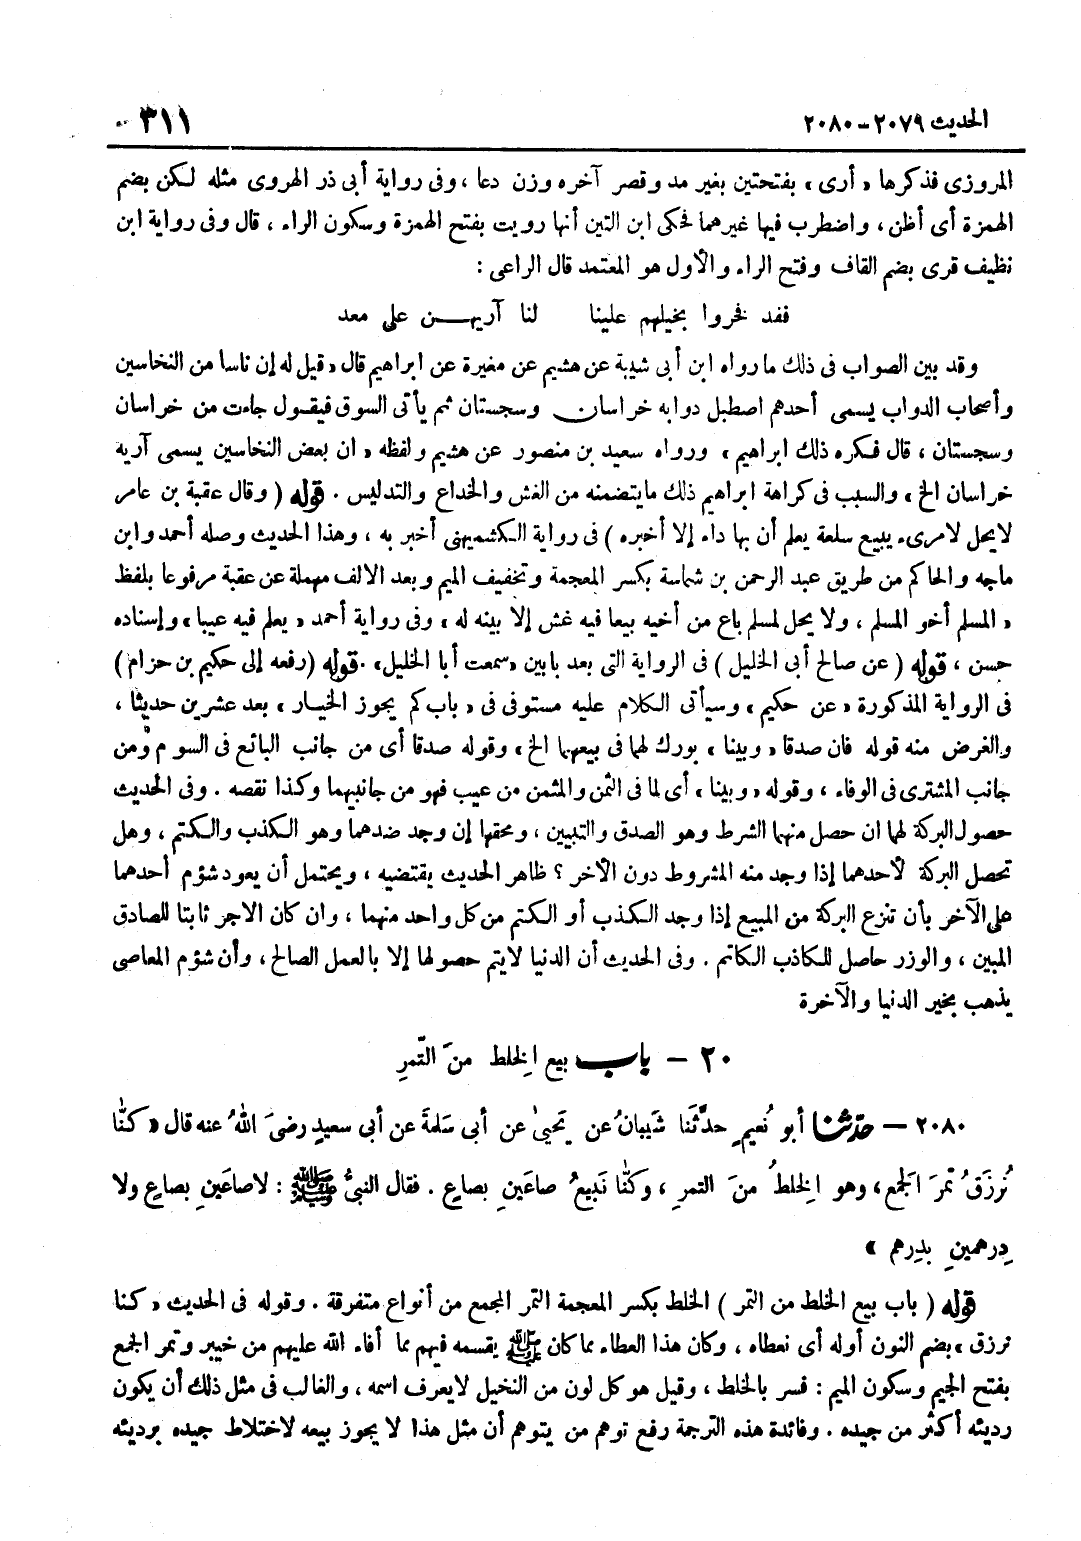 الحديث ٢٠٧٩ - ٢٠٨٠
٣١١
المروزى فذكرها « أرى » بفتحتين بغير مد وقصر آخره وزن دعا ، وفى رواية أبى ذر الهروى مثله لكن بضم
الهمزة أى أظن ، واضطرب فيها غيرهما فحكى ابن التين أنها رويت بفتح الهمزة وسكون الراء ، قال وفى رواية ابن
نظيف قرى بضم القاف وفتح الراء والأول هو المعتمد قال الراعى :
فقد فخروا بخيلهم علينا لنا آريهــن على معد
وقد بين الصواب فى ذلك ما رواه ابن أبى شيبة عن هشيم عن مغيرة عن ابراهيم قال « قيل له إن ناسا من النخاسين
وأصحاب الدواب يسمى أحدهم اصطبل دوابه خراسان وسجستان ثم يأتى السوق فيقول جاءت من خراسان
وسجستان ، قال فكره ذلك ابراهيم » ورواه سعيد بن منصور عن هشيم ولفظه « ان بعض النخاسين يسمى آريه
خراسان الخ » والسبب فى كراهة ابراهيم ذلك ما يتضمنه من الغش والخداع والتدليس . قوله ( وقال عقبة بن عامر
لا يحل لامرىء يبيع سلعة يعلم أن بها داء إلا أخبره ) فى رواية الكشميهنى أخبر به ، وهذا الحديث وصله أحمد وابن
ماجه والحاكم من طريق عبد الرحمن بن شماسة بكسر المعجمة وتخفيف الميم وبعد الالف مهملة عن عقبة مرفوعا بلفظ
« المسلم أخو المسلم ، ولا يحل لمسلم باع من أخيه بيعا فيه غش إلا بينه له » وفى رواية أحمد « يعلم فيه عيبا » وإسناده
حسن ، قوله ( عن صالح أبى الخليل ) فى الرواية التى بعد بابين « سمعت أبا الخليل » . قوله (رفعه إلى حكيم بن حزام)
فى الرواية المذكورة « عن حكيم » وسيأتى الكلام عليه مستوفى فى « باب كم يجوز الخيار » بعد عشرين حديثا ،
والغرض منه قوله فان صدقا « وبينا » بورك لهما فى بيعهما الخ » وقوله صدقا أى من جانب البائع فى السوم ومن
جانب المشترى فى الوفاء ، وقوله « وبينا » أى لما فى الثمن والمثمن من عيب فهو من جانبيهما وكذا نقصه . وفى الحديث
حصول البركة لهما ان حصل منهما الشرط وهو الصدق والتبيين ، ومحقها إن وجد ضدهما وهو الكذب والكتم ، وهل
تحصل البركة لأحدهما إذا وجد منه المشروط دون الآخر ؟ ظاهر الحديث يقتضيه ، ويحتمل أن يعود شؤم أحدهما
على الآخر بأن تنزع البركة من المبيع إذا وجد الكذب أو الكتم من كل واحد منهما ، وان كان الاجر ثابتا للصادق
المبين ، والوزر حاصل للكاذب الكاتم . وفى الحديث أن الدنيا لا يتم حصولها إلا بالعمل الصالح ، وأن شؤم المعاصى
يذهب بخير الدنيا والآخرة
٢٠ - باب بيع الخِلط منَ التّمرِ
٢٠٨٠ - حدّثنا أبو نُعيمٍ حدَّثَنا شَيبانُ عن يَحيىٰ عن أبى سَلمةَ عن أبى سعيدٍ رضىَ اللهُ عنه قال « كنّا
نُرزَقُ تمرَ الجَمع ، وهو الخِلطُ منَ التمرِ ، وكنّا نَبيعُ صاعَينِ بصاعٍ . فقال النبىُّ ﷺ : لا صاعَينِ بصاعٍ ولا
دِرهمينِ بدِرهم »
قوله ( باب بيع الخلط من التمر ) الخلط بكسر المعجمة التمر المجمع من أنواع متفرقة . وقوله فى الحديث « كنا
نرزق » بضم النون أوله أى نعطاه ، وكان هذا العطاء مما كان ﷺ يقسمه فيهم مما أفاء الله عليهم من خيبر وتمر الجمع
بفتح الجيم وسكون الميم : فسر بالخلط ، وقيل هو كل لون من النخيل لا يعرف اسمه ، والغالب فى مثل ذلك أن يكون
رديئه أكثر من جيده . وفائدة هذه الترجمة رفع توهم من يتوهم أن مثل هذا لا يجوز بيعه لاختلاط جيده برديئه